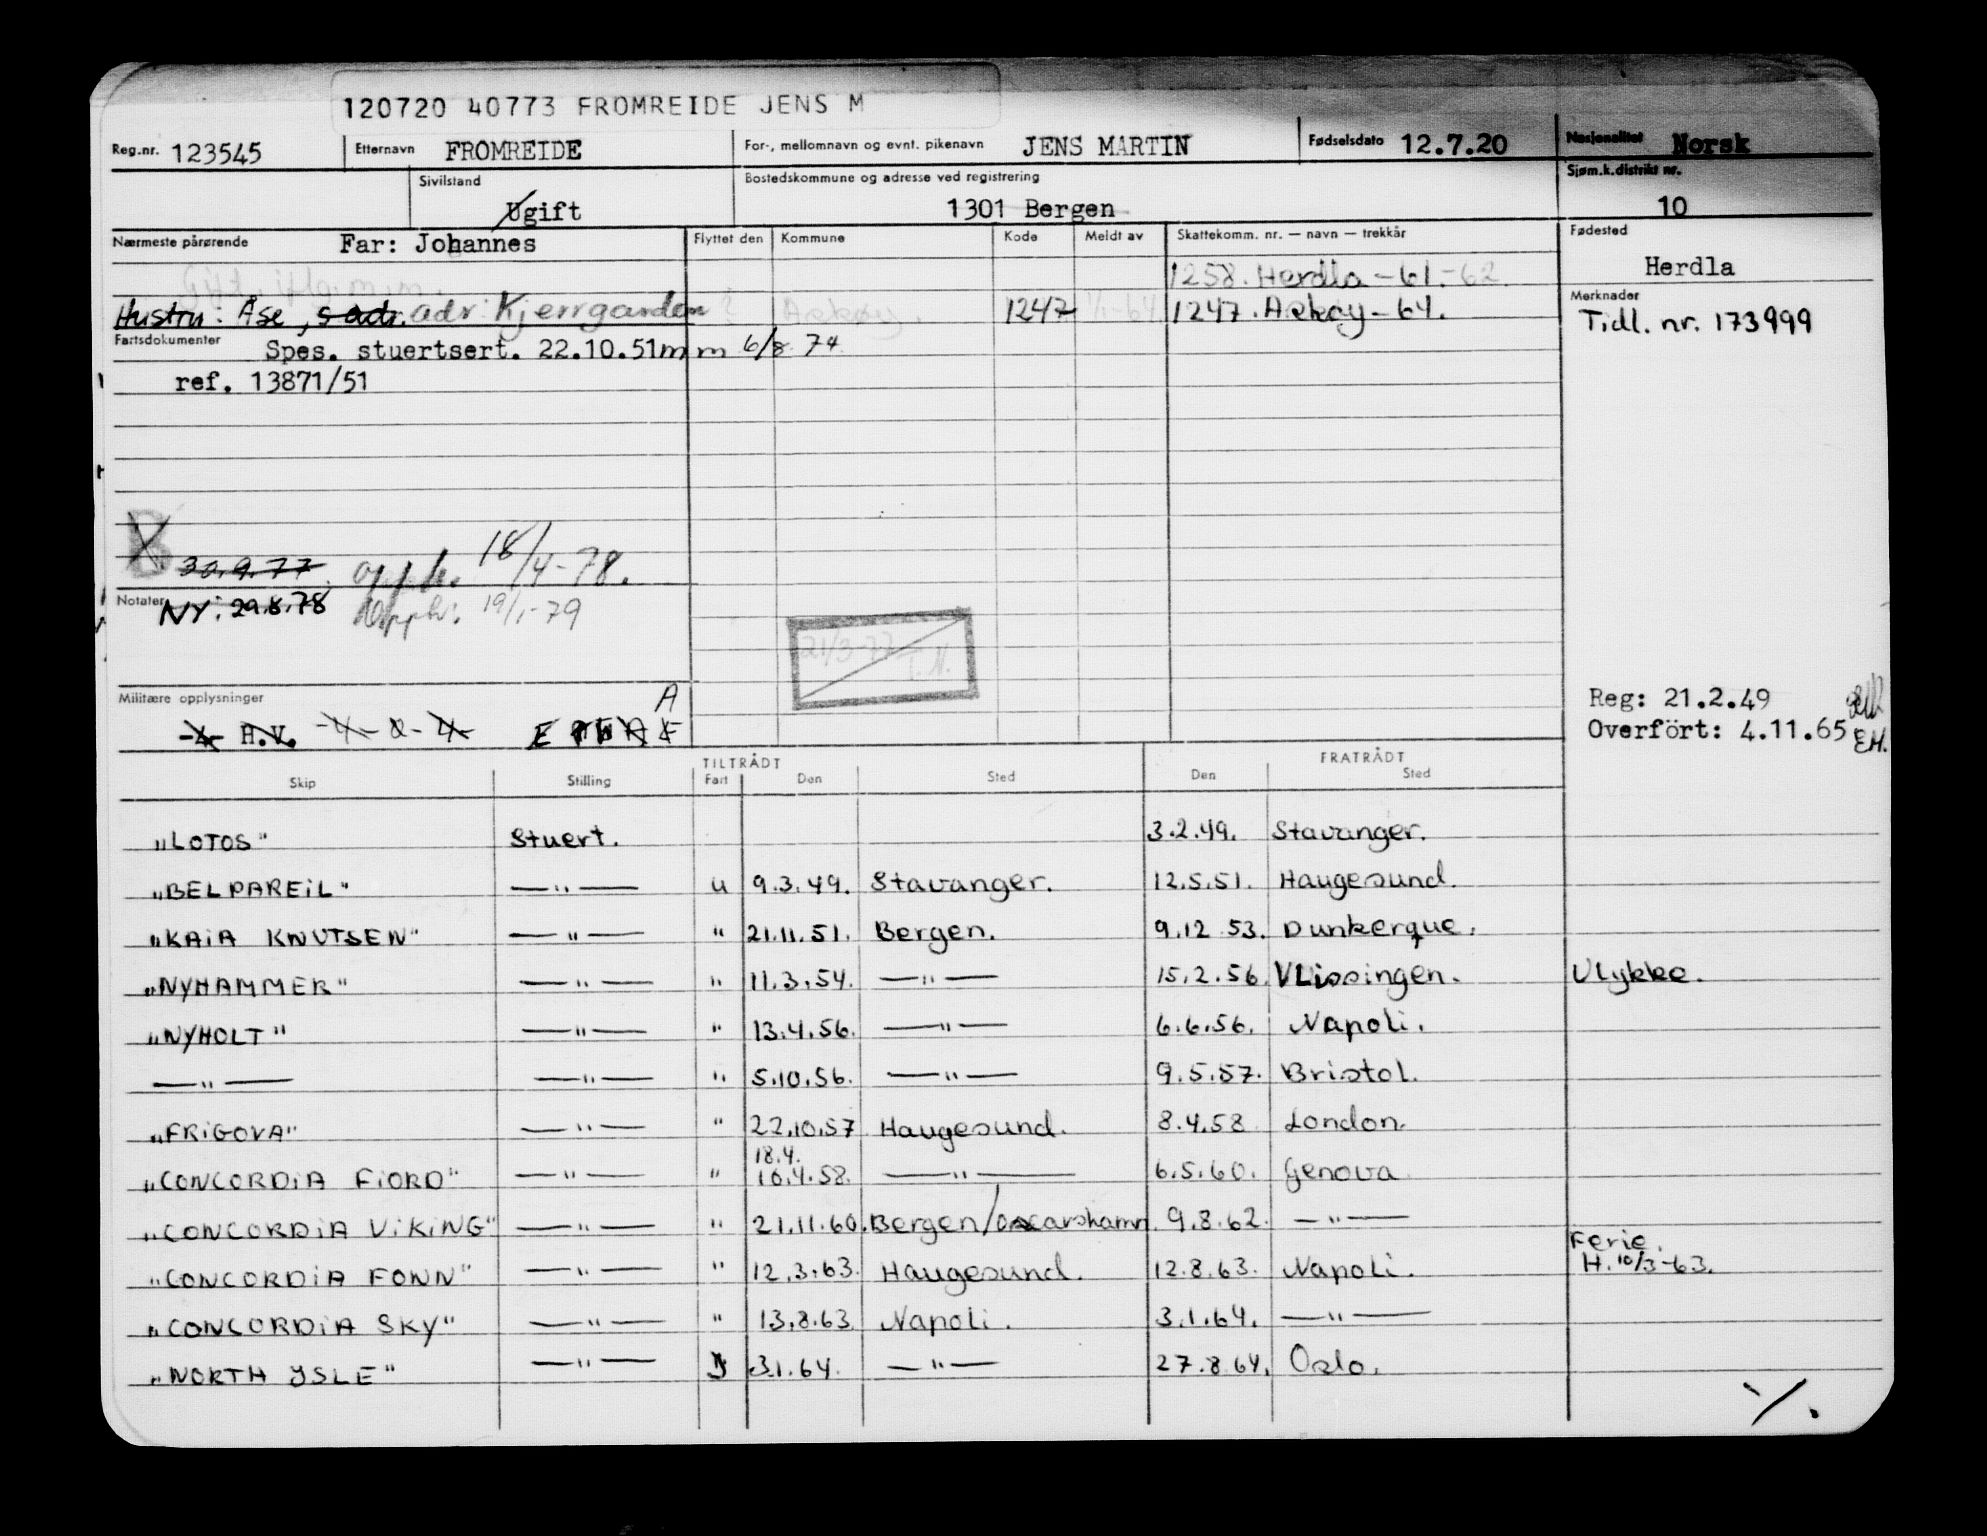 120720 40773 FROMREIDE JENS M
Reg.nr. 123545 Etternavn FROMREIDE For-, mellomnavn og evnt. pikenavn JENS MARTIN Fødselsdato 12.7.20 Nasjonalitet Norsk
Sivilstand Ugift Bostedskommune og adresse ved registrering 1301 Bergen Sjøm.k.distrikt nr. 10
Nærmeste pårørende Far: Johannes Flyttet den Kommune Kode Meldt av Skattekomm. nr. — navn — trekkår Fødested
Gift 1258. Herdla - 61 - 62. Herdla
Hustru: Åse, s adr. adr: Kjerrgarden Askøy. 1247 1/1-64 1247. Askøy - 64. Merknader
Tidl. nr. 173999
Fartsdokumenter Spes. stuertsert. 22.10.51 mm 6/8 74
ref. 13871/51
B
30.9.77. opph. 18/4-78.
Notater NY: 29.8.78 Opph: 19/1-79
21/3-77 T.M.
Militære opplysninger A
-4- H.V. -4- 2- 4- Reg: 21.2.49
Overført: 4.11.65 EH.
TILTRÅDT FRATRÅDT
Skip Stilling Fart Den Sted Den Sted
"LOTOS" Stuert. 3.2.49. Stavanger.
"BELPAREIL" —"— u 9.3.49. Stavanger. 12.5.51. Haugesund.
"KAIA KNUTSEN" —"— " 21.11.51. Bergen. 9.12 53. Dunkerque.
"NYHAMMER" —"— " 11.3.54. —"— 15.2.56 VLissingen. Ulykke.
"NYHOLT" —"— " 13.4.56. —"— 6.6.56. Napoli.
—"— —"— " 5.10.56. —"— 9.5.57. Bristol.
"FRIGOVA" —"— " 22.10.57 Haugesund. 8.4.58 London.
18.4.
"CONCORDIA FIORD" —"— " 16.4.58. —"— 6.5.60. Genova
"CONCORDIA VIKING" —"— " 21.11.60. Bergen/Oscarshamn. 9.8.62. —"—
Ferie.
"CONCORDIA FONN" —"— " 12.3.63. Haugesund. 12.8.63. Napoli. H. 10/3-63.
"CONCORDIA SKY" —"— " 13.8.63. Napoli. 3.1.64. —"—
"NORTH YSLE" —"— 3.1.64. —"— 27.8.64. Oslo.
./.